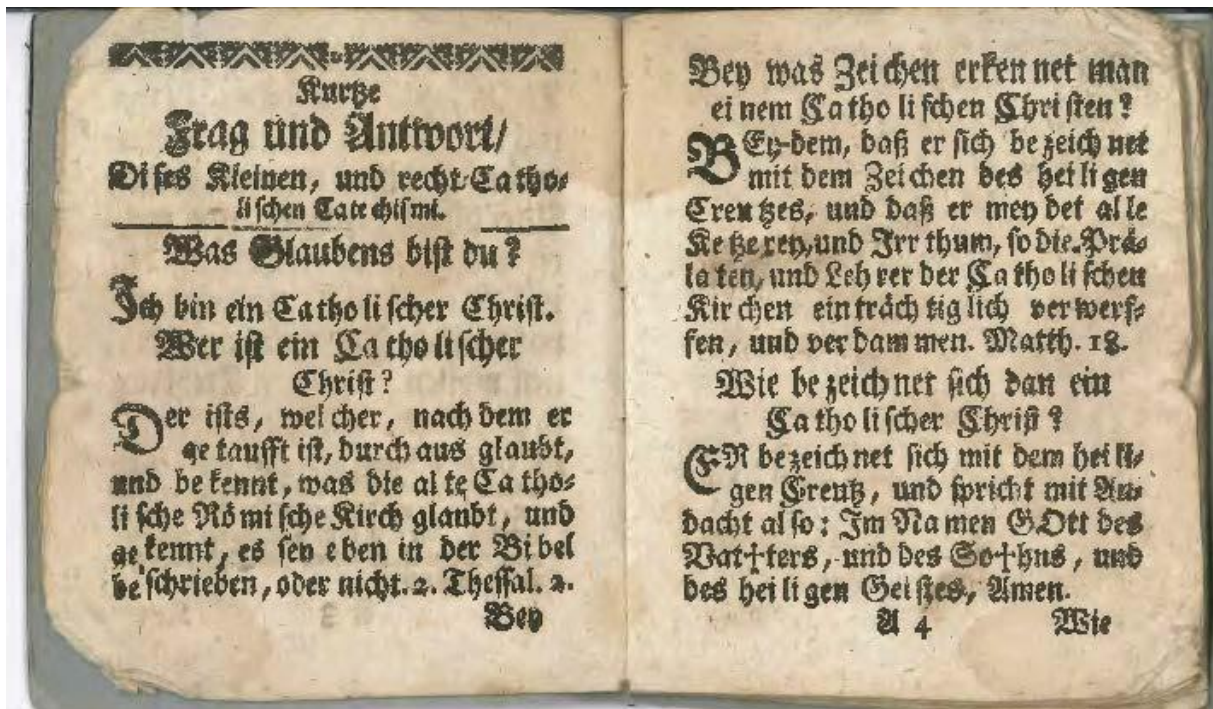 Kurtze
Frag und Antwort/
Dises Kleinen, und recht Ca tho-
li schen Cate chismi.
Was Glaubens bist du?
Ich bin ein Ca tho li scher Christ.
Wer ist ein Ca tho li scher
Christ?
Der ists, wel cher, nach dem er
ge taufft ist, durch aus glaubt,
und be kennt, was die al te Ca tho-
li sche Rö mi sche Kirch glaubt, und
ge kennt, es sey e ben in der Bi bel
be schrieben, oder nicht. 2. Thessal. 2.
Bey
Bey was Zei chen erken net man
ei nem Ca tho li schen Chri sten?
BEy dem, daß er sich be zeich net
mit dem Zei chen des hei li gen
Creu tzes, und daß er mey det al le
Ke tze rey, und Irr thum, so die Prä-
la ten, und Leh rer der Ca tho li schen
Kir chen ein träch tig lich ver werf-
fen, und ver dam men. Matth. 18.
Wie be zeich net sich dan ein
Ca tho li scher Christ?
ER be zeich net sich mit dem hei li-
gen Creutz, und spricht mit An-
dacht al so: Im Na men GOtt des
Vat†ters, und des So†hns, und
des hei li gen Gei stes, Amen.
A 4 Wie